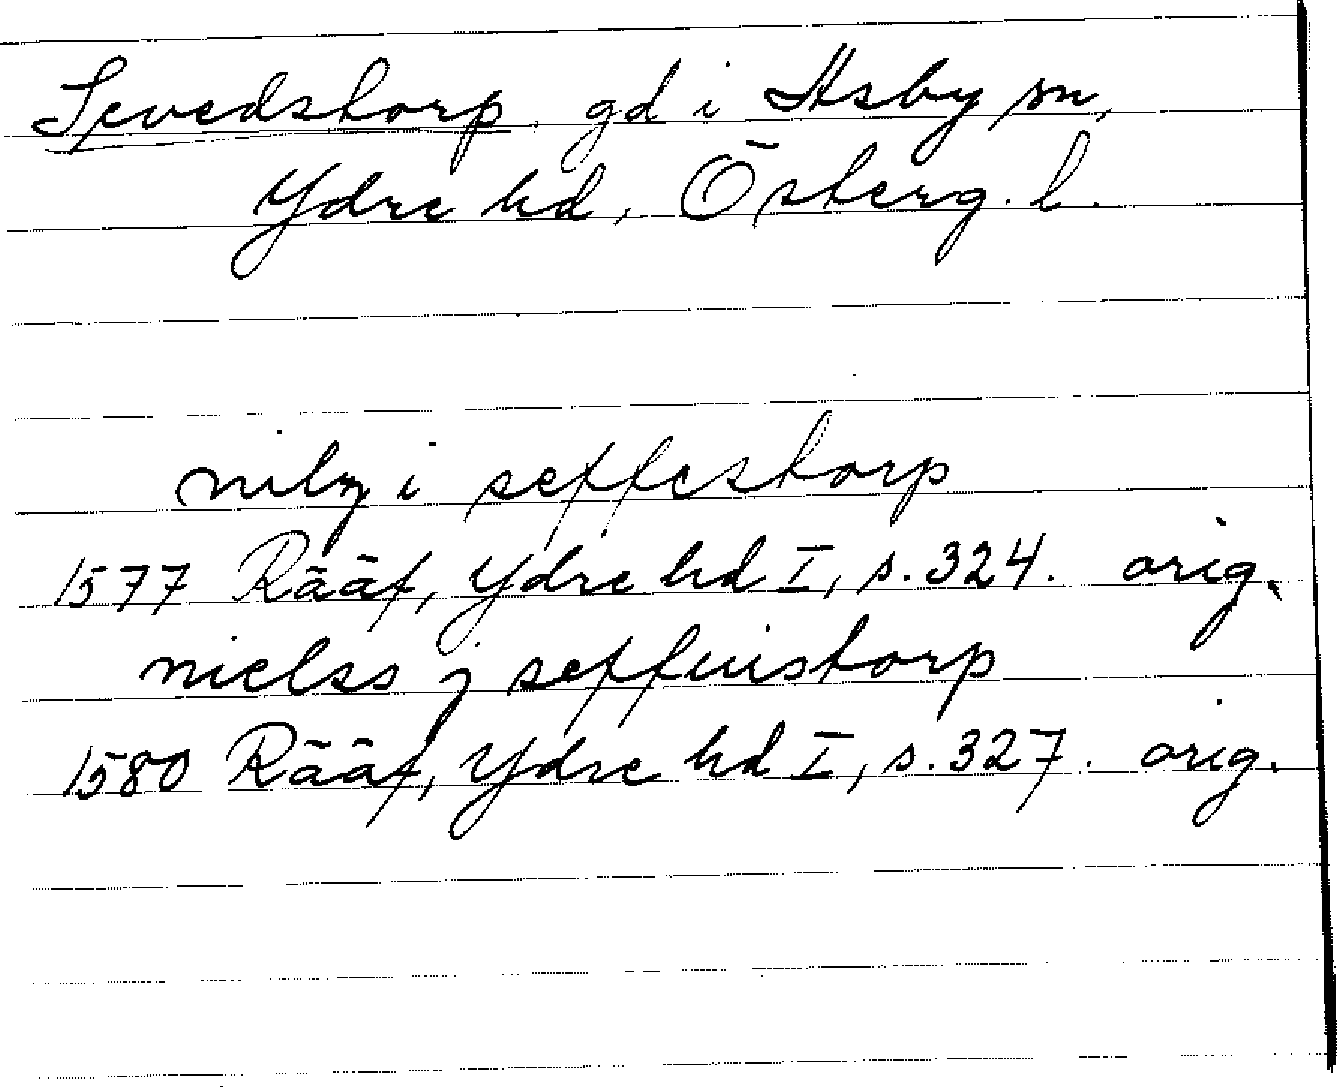 Sevedstorp, gd i Asby sn,
Ydre hd, Österg. l.
nilz i seffestorp
1577 Rääf, Ydre hd I, s. 324. orig.
nielss j seffuistorp
1580 Rääf, Ydre hd I, s. 327. orig.